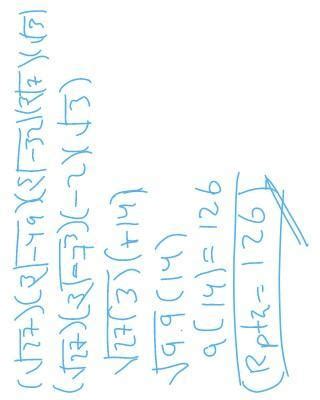 (√27)(∛-49)(⁵√-32)(∛7)(√3)
(√27)(∛-7³)(-2)(√3)
√27(3)(+14)
√9.9(14)
9(14) = 126
Rpta = 126